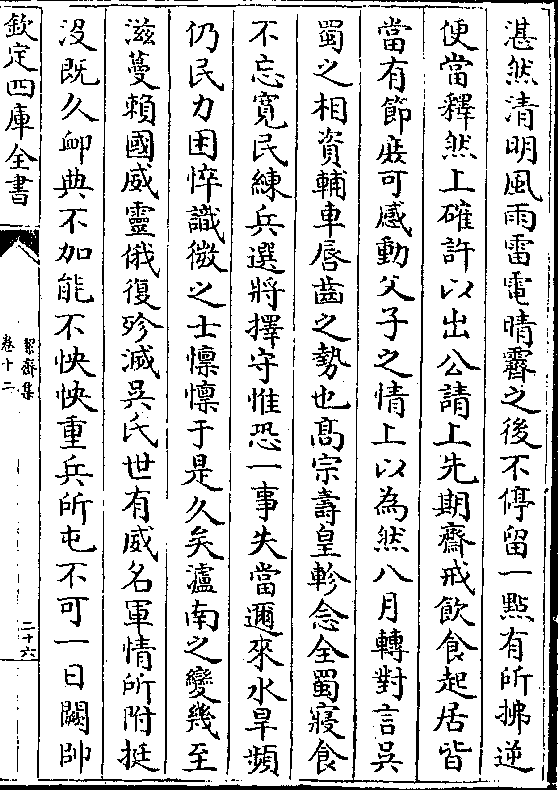 湛然清明風雨雷電晴霽之後不停留一㸃有所拂逆
便當釋然上確許以出公請上先期齋戒飲食起居皆
當有節庶可感動父子之情上以為然八月轉對言吳
蜀之相資輔車唇齒之勢也髙宗壽皇軫念全蜀寢食
不忘寛民練兵選將擇守惟恐一事失當邇來水旱頻
仍民力困悴識微之士懍懍于是久矣瀘南之變幾至
滋蔓賴國威靈俄復殄滅吳氏世有威名軍情所附挺
沒既久卹典不加能不怏怏重兵所屯不可一日闕帥
欽定四庫全書
絜齋集
卷十二
二十六